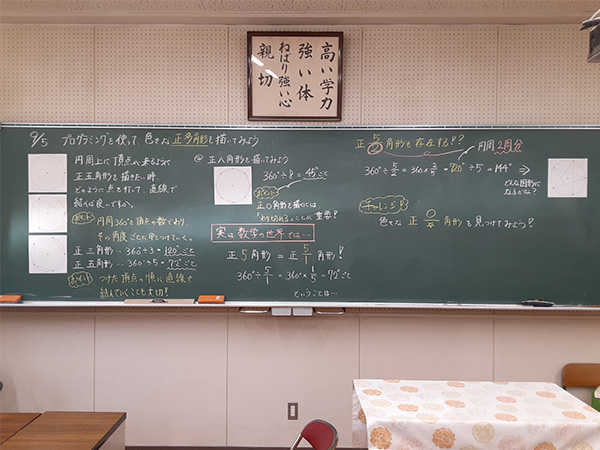 高い学力
強い体
ねばり強い心
親切
9/5 プログラミングを使って 色々な 正多角形を描いてみよう
円周上に頂点が来るように
正五角形を描きたい時、
どのように点をうって、直線で
結べば良いですか。
ポイント
円周360°を頂点の数でわり、
その角度ごとに印をつけていく。
正三角形… 360°÷3=120°ごと
正五角形… 360°÷5=72°ごと
ポイント
つけた頂点の順に直線で
結んでいくことも大切!
◎ 正八角形を描いてみよう
360°÷8=45°ごと
ポイント
正○角形を描くには
"わり切れる"ことが重要!
実は数学の世界では…
正5角形 = 正5/1角形!
360°÷5/1=360°×1/5=72°ごと
ということは…
正5/2角形も存在する!??
円周2周分
360°÷5/2=360°×2/5=720°÷5=144°⇒
どんな図形に
なるかな?
チャレンジ!
色々な 正○/○角形を見つけてみよう!